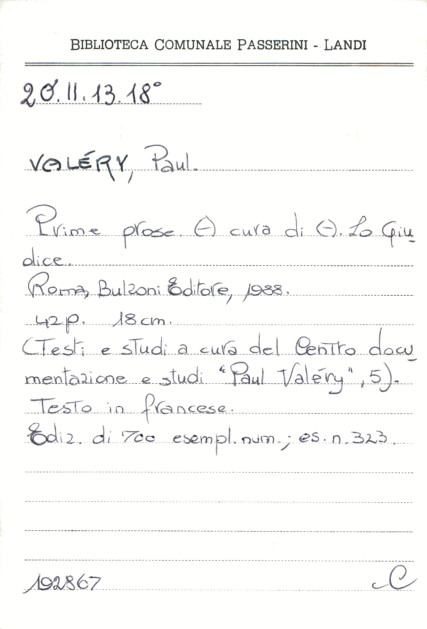 BIBLIOTECA COMUNALE PASSERINI - LANDI
20.II.13.18°
VALÉRY, Paul.
Prime prose. (-) cura di (-). Lo Giu
dice.
Roma, Bulzoni Editore, 1988.
42 p. 18 cm.
(Testi e studi a cura del Centro docu
mentazione e studi "Paul Valéry", 5).
Testo in francese.
Ediz. di 700 esempl. num.; es. n. 323.
192867 C